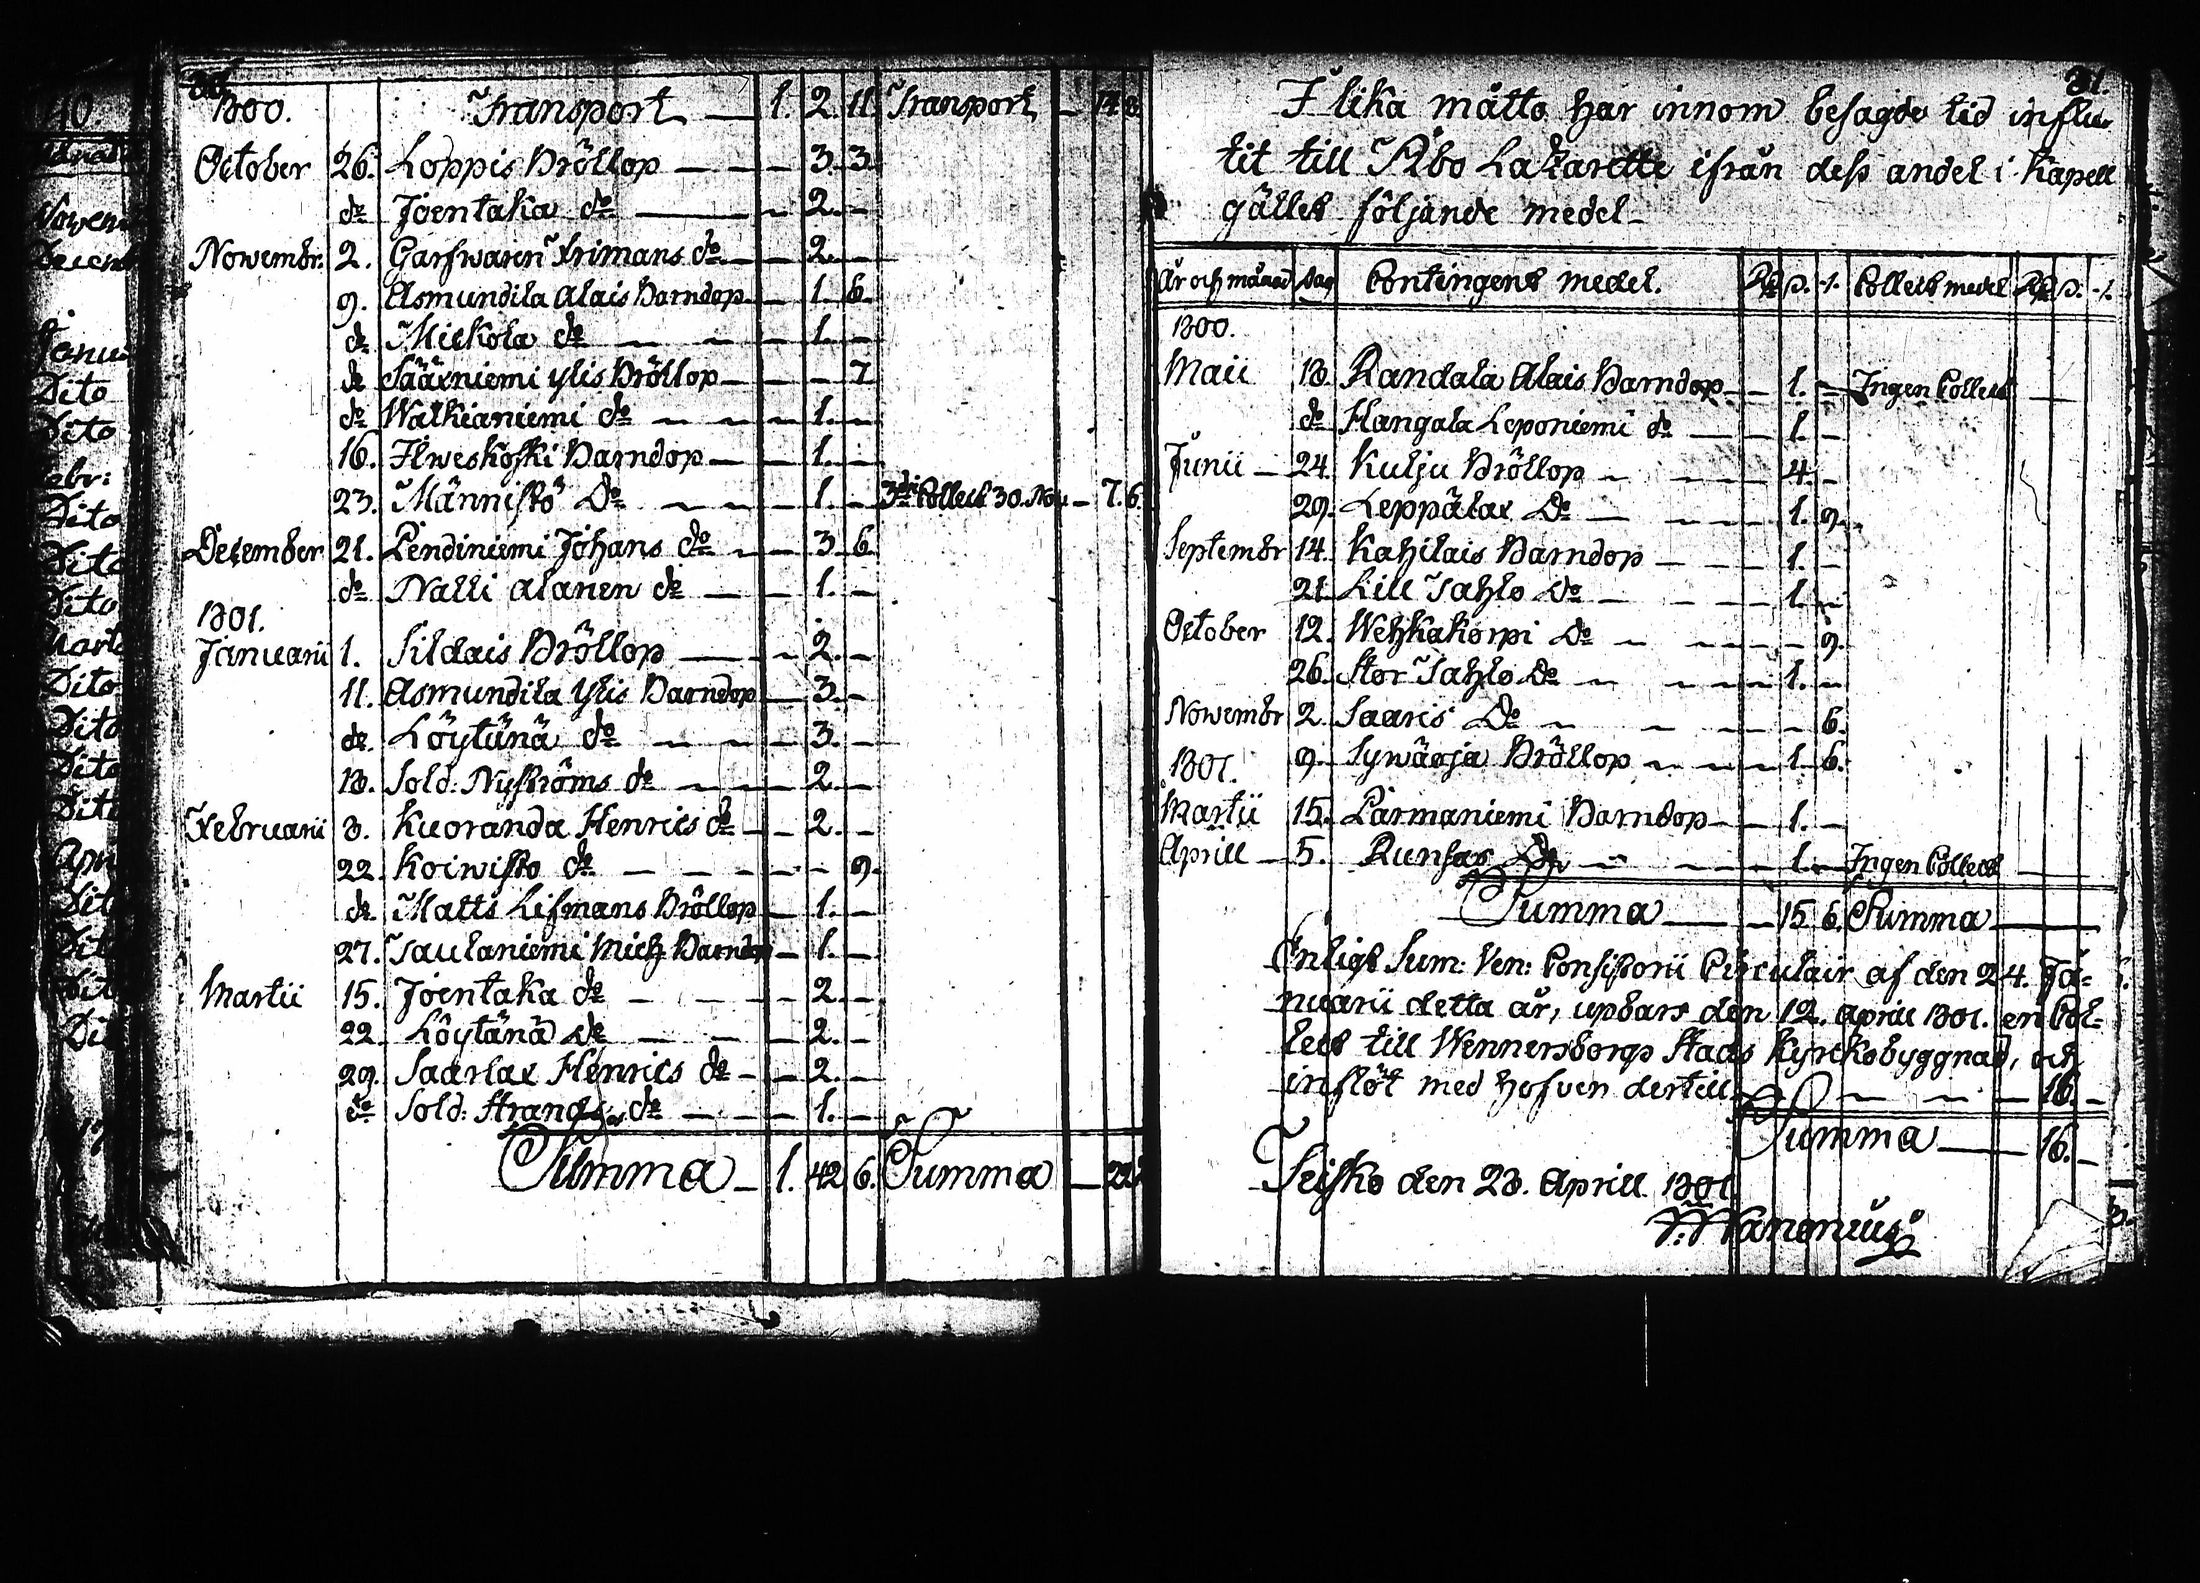 1800. Transport — 1. 2. 11. Transport — 14. 8.
October 26. Loppis Bröllop — — 3. 3.
do Joentaka do — — 2. —
Novembr. 2. Garfwaren Frimans do — — 2. —
9. Asmundila Alais Barndop — — 1. 6.
do Mickola do — — 1. —
do Säärniemi ylis Bröllop — — — 7
do Walkianiemi do — — 1. —
16. Ilweskoski Barndop — — 1. —
23. Männistö Do — — 1. — 3die Collect 30. Nov — 7. 6.
December 21. Pendiniemi Johans do — — 3. 6.
do Nalli alanen do — — 1. —
1801.
Januarii 1. Sildais Bröllop — — 2. —
11. Asmundila Ylis Barndop — 3. —
do Löytänä do — — 3. —
18. Sold: Nyströms do — — 2. —
Februarii 8. Kuoranda Henrics do — — 2. —
22. Koivisto do — — — 9.
do Matts Lifmans Bröllop — 1. —
27. Taulaniemi Mich Barndop — 1. —
Martii 15. Joentaka do — — 2. —
22. Löytänä do — — 2. —
29. Saarlax Henrics do — — 2. —
do Sold: Strands do — — 1. —
Summa — 1. 42 6. Summa — 22.
31.
I lika måtto har innom besagde tid influ-
tit till Åbo Lazarette ifrån dess andel i Kapell
gället följande medel —
År och månad Dag Contingent medel. Rd s. r. Collect medel Rd s. r.
1800.
Maii 18. Randala Alais Barndop — — 1. — Ingen Collect
do Hangala Leponiemi do — — 1. —
Junii — 24. Kulju Bröllop — — 4. —
29. Leppälax Do — — 1. 9.
Septembr 14. Kahilais Barndop — — 1. —
21. Lill Tahlo Do — — 1. —
October 12. Wehkakorpi Do — — — 9.
26. Stor Tahlo Do — — 1. —
Novembr 2. Saaris Do — — — 6.
9. Sywäoja Bröllop — — 1. 6.
1801.
Martii 15. Pärmaniemi Barndop — — 1. —
Aprill — 5. Runsas Do — — 1. — Ingen Collect
Summa — — 15. 6. Summa —
Enligt Sum: Ven: Consistorii Circulair af den 24. Ja-
nuarii detta år, upbars den 12. April 1801. en Col-
lect till Wennersborgs Stads Kyrkobyggnad, och
inflöt med hofven dertill — — 16. —
Summa — 16. —
Teisko den 23. Aprill 1801.